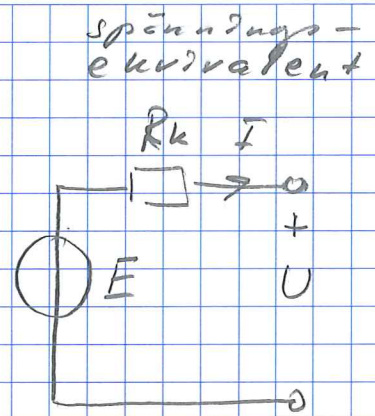 spännings-
ekvivalent
Rk I
+
E U